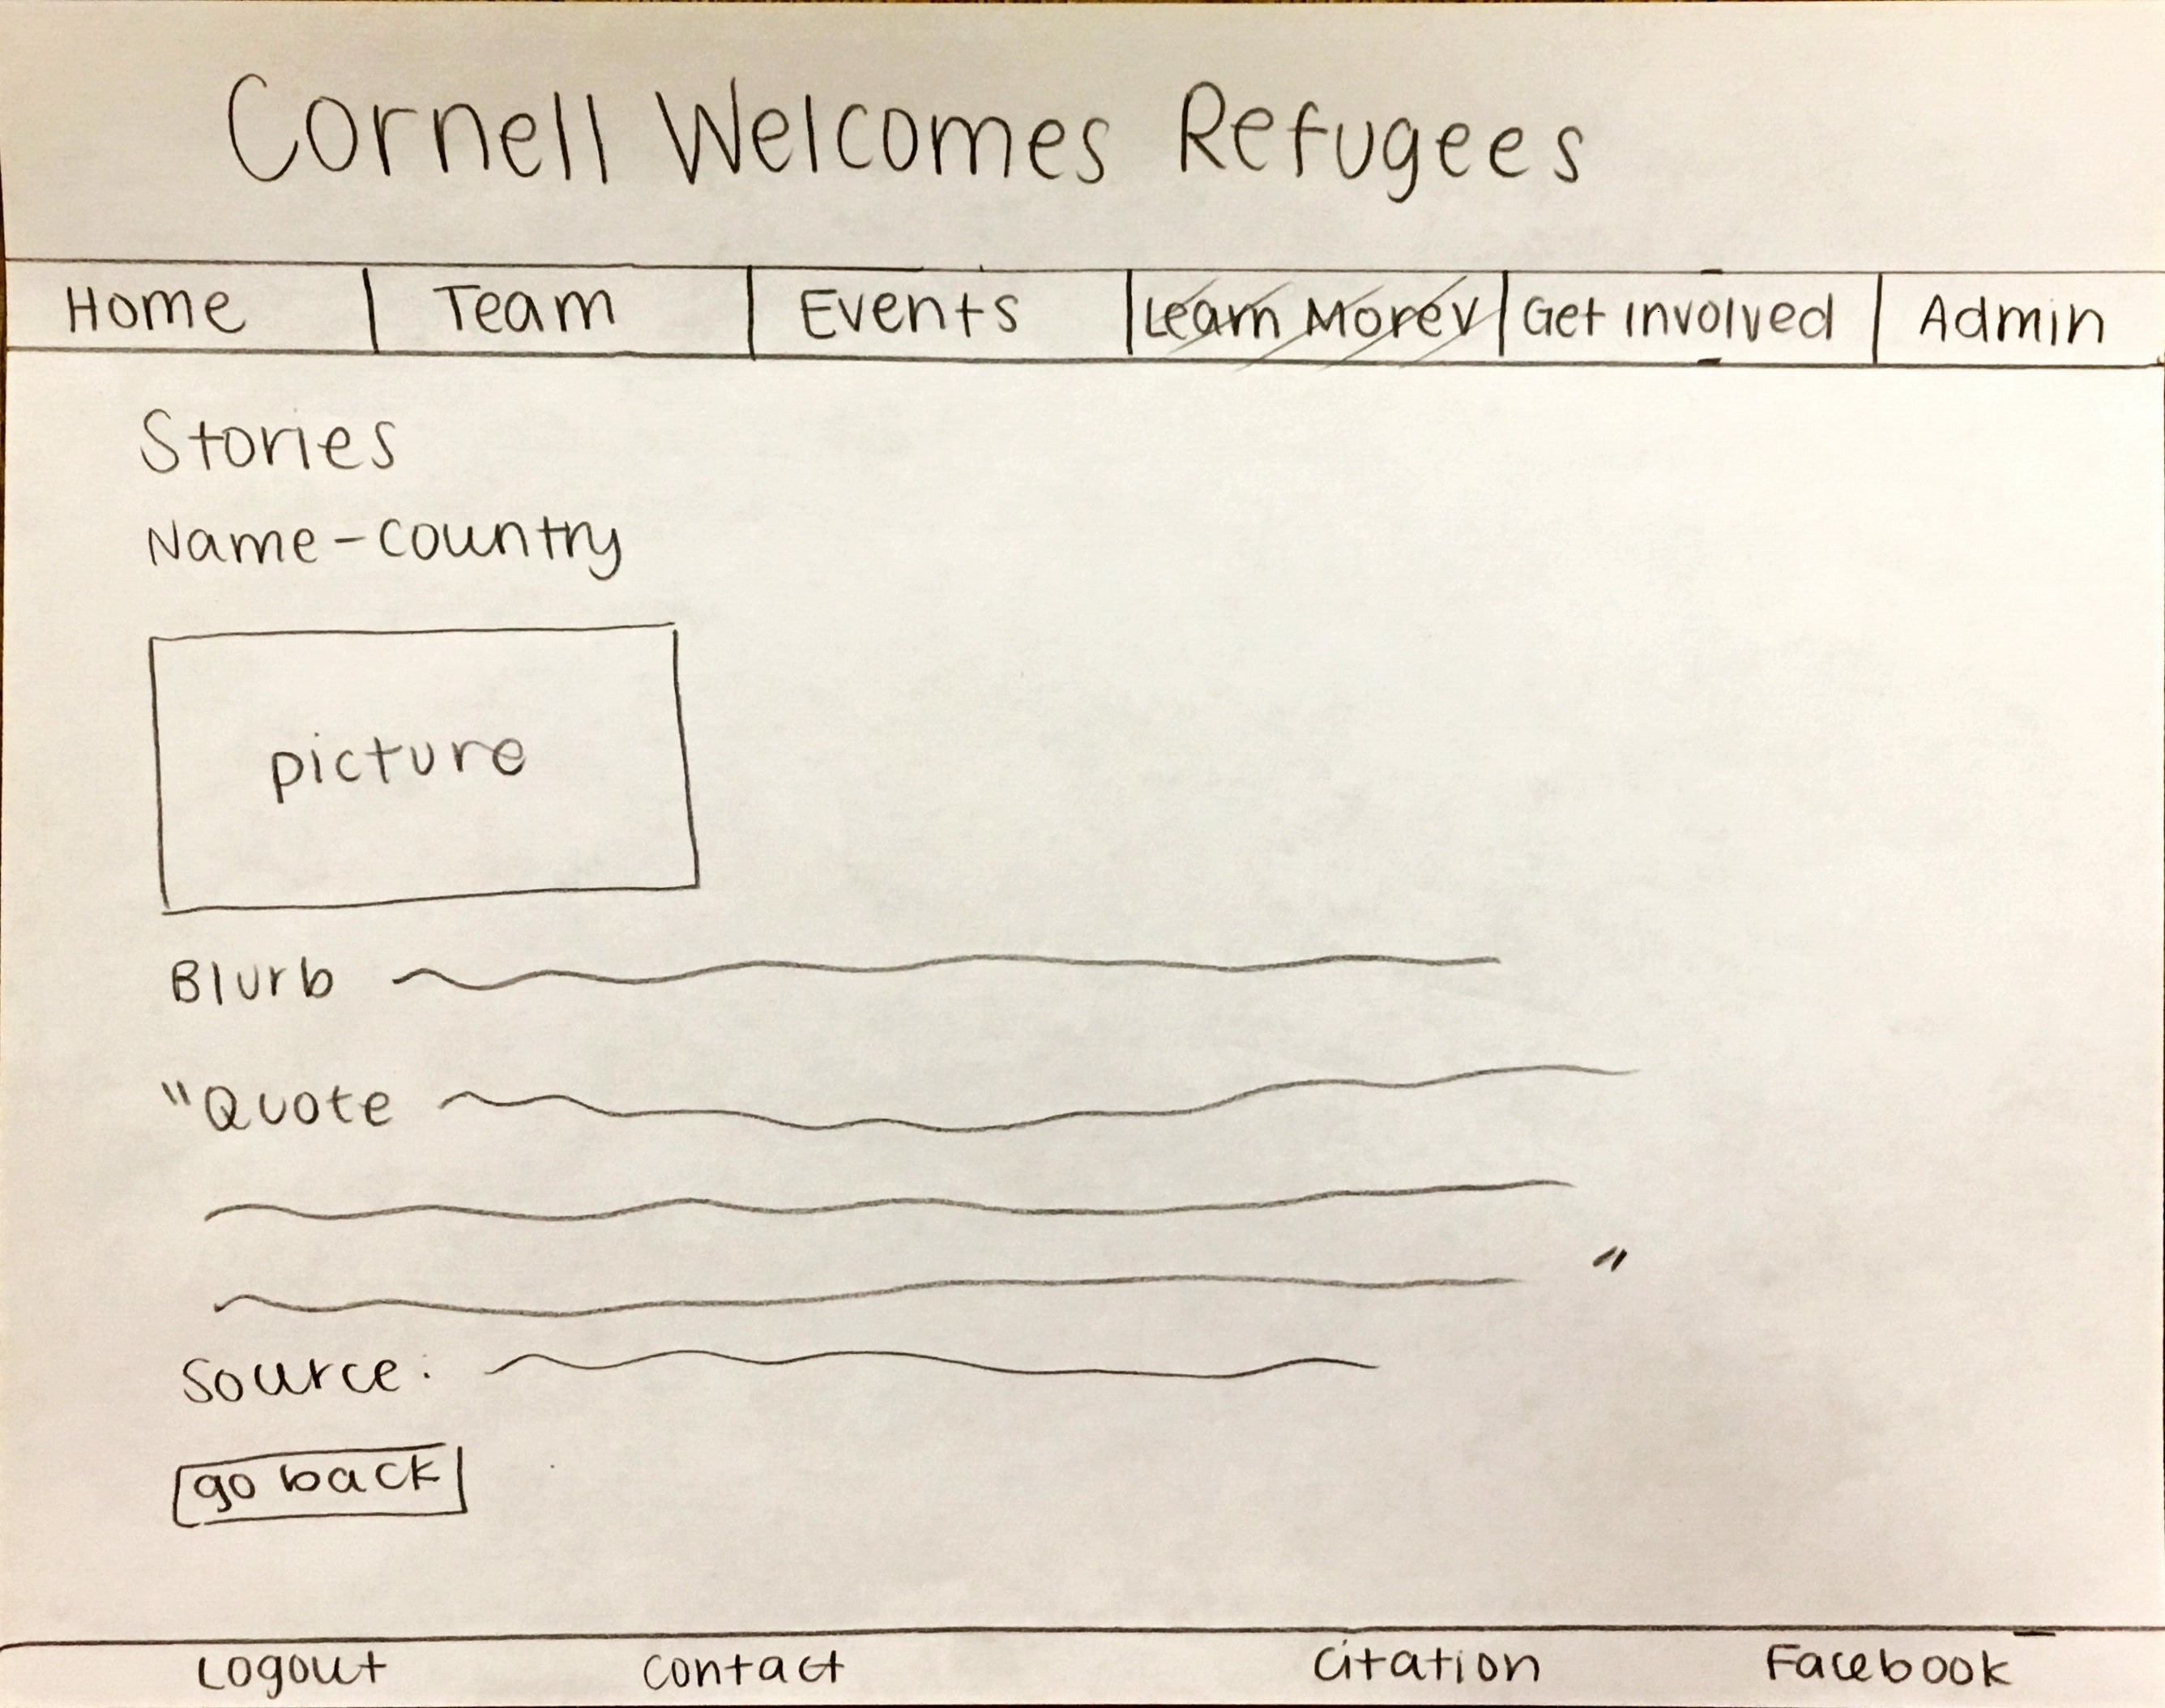 Cornell Welcomes Refugees
Home | Team | Events | Learn More v | Get involved | Admin
Stories
Name - Country
picture
Blurb
"Quote
"
Source:
go back
Logout contact Citation Facebook